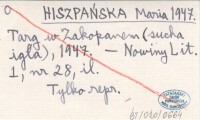 HISZPAŃSKA Maria 1947.
Targ w Zakopanem (sucha
igła), 1947. - Nowiny Lit.
1, nr 28, il.
Tylko repr.